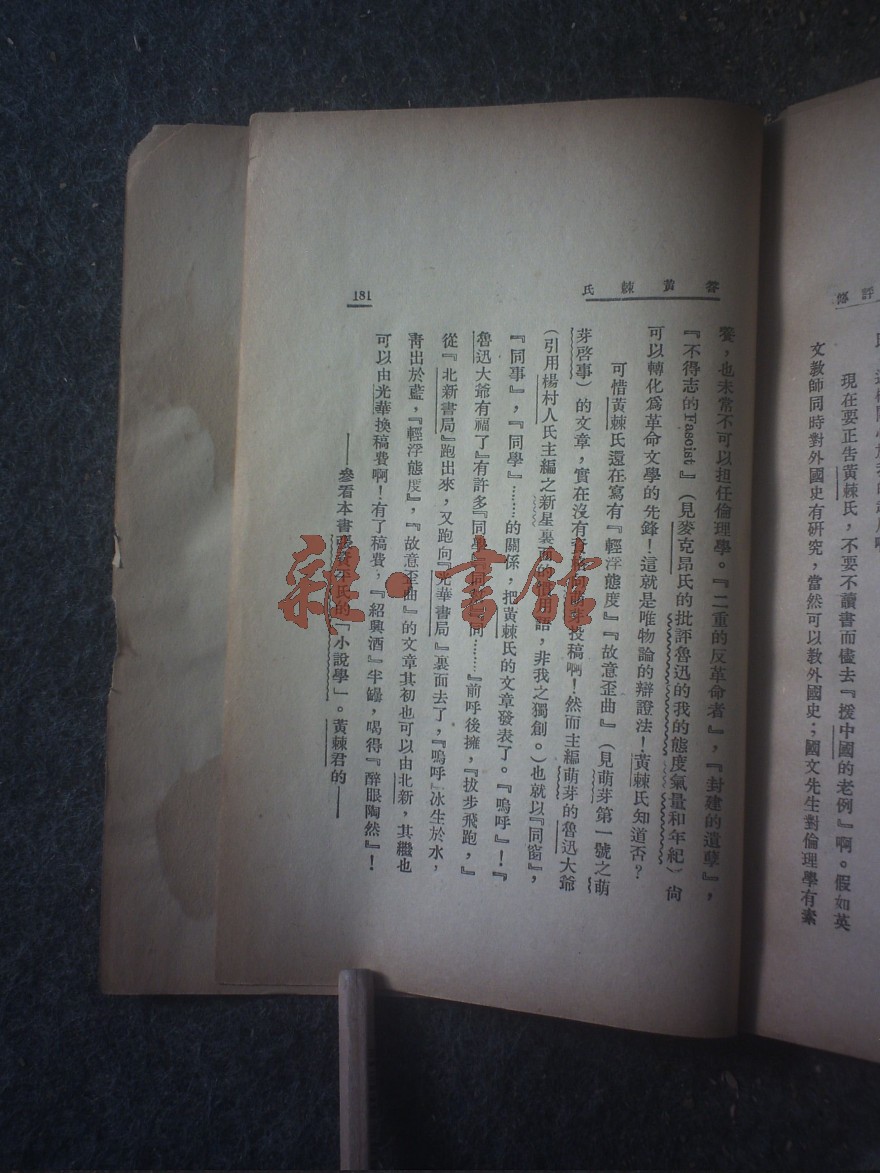 評
現在要正告黃棘氏，不要不讀書而儘去『援中國的老例』啊。假如英
文教師同時對外國史有研究，當然可以教外國史；國文先生對倫理學有素
答黃棘氏
181
養，也未常不可以担任倫理學。『二重的反革命者』，『封建的遺孽』，
『不得志的Fasoist』（見麥克昂氏的批評魯迅的我的態度氣量和年紀）尙
可以轉化爲革命文學的先鋒！這就是唯物論的辯證法！黃棘氏知道否？
可惜黃棘氏還在寫有『輕浮態度』『故意歪曲』（見萌芽第一號之萌
芽啓事）的文章，實在沒有資格向萌芽投稿啊！然而主編萌芽的魯迅大爺
（引用楊村人氏主編之新星裏面的慣用語，非我之獨創。）也就以『同窗』，
『同事』，『同學』………的關係，把黃棘氏的文章發表了。『嗚呼』！『
魯迅大爺有福了』有許多『同學』『同……』前呼後擁，『拔步飛跑，』
從『北新書局』跑出來，又跑向『光華書局』裏面去了，『嗚呼』冰生於水，
靑出於藍，『輕浮態度』，『故意歪曲』的文章其初也可以由北新，其繼也
可以由光華換稿費啊！有了稿費，『紹興酒』半罎，喝得『醉眼陶然』！
——參看本書張資平氏的「小說學」。黃棘君的——
書館